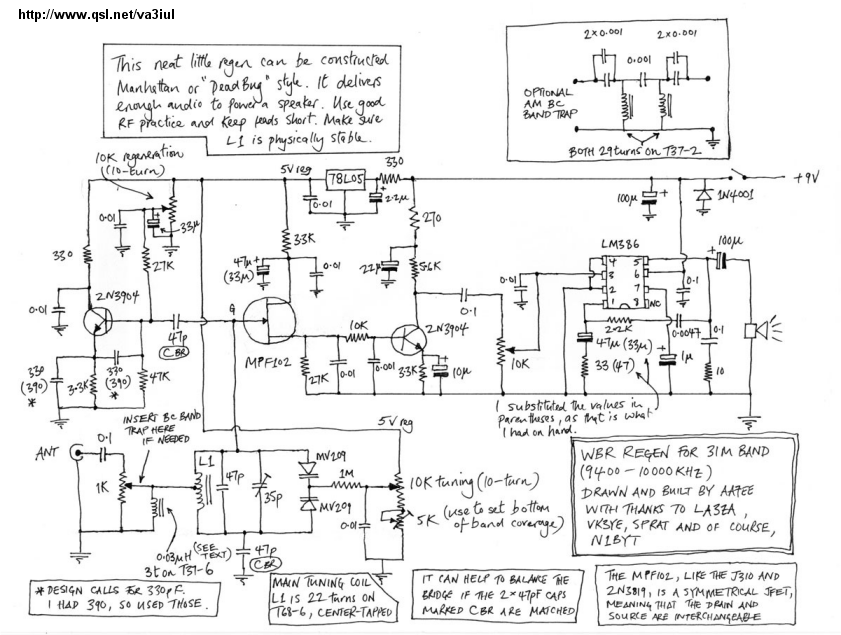 http://www.qsl.net/va3iul
This neat little regen can be constructed
Manhattan or "DeadBug" style. It delivers
enough audio to power a speaker. Use good
RF practice and keep leads short. Make sure
L1 is physically stable.
2x0.001
2x0.001
0.001
OPTIONAL
AM BC
BAND TRAP
BOTH 29 turns on T37-2
10K regeneration
(10-turn)
5V reg
78L05
330
+9V
0.01
2.2µ
100µ
1N4001
0.01
33µ
330
27K
3.3K
270
47µ
(33µ)
0.01
22µ
5.6K
LM386
100µ
4
5
3
6
2
7
1
8
NC
0.01
0.1
0.01
2N3904
G
47p
CBR
MPF102
10K
2N3904
0.1
10K
2.2K
0.0047
0.1
47µ (33µ)
1µ
33 (47)
10
330
(390)
*
3.3K
330
(390)
*
47K
27K
0.01
0.001
3.3K
10µ
I substituted the values in
parentheses, as that is what
I had on hand.
INSERT BC BAND
TRAP HERE
IF NEEDED
5V reg
ANT
0.1
1K
L1
47p
35p
MV209
MV209
1M
0.01
10K tuning (10-turn)
5K (use to set bottom
of band coverage)
0.03µH
3t on T37-6
(SEE
TEXT)
47p
CBR
WBR REGEN FOR 31M BAND
(9400-10000KHZ)
DRAWN AND BUILT BY AA7EE
WITH THANKS TO LA3ZA,
VK3YE, SPRAT AND OF COURSE,
N1BYT
* DESIGN CALLS FOR 330pF.
I HAD 390, SO USED THOSE.
MAIN TUNING COIL
L1 IS 22 turns on
T68-6, CENTER-TAPPED
IT CAN HELP TO BALANCE THE
BRIDGE IF THE 2x47pF CAPS
MARKED CBR ARE MATCHED
THE MPF102, LIKE THE J310 AND
2N3819, IS A SYMMETRICAL JFET,
MEANING THAT THE DRAIN AND
SOURCE ARE INTERCHANGEABLE